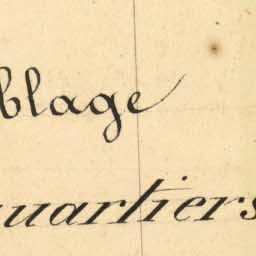 blage
quartiers